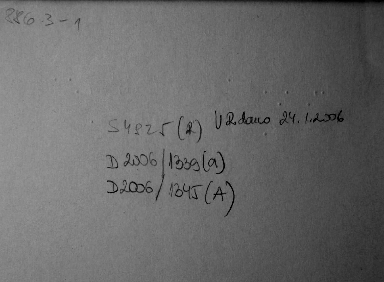 886.3-1
S4825(R) V Rdano 24.1.2006
D2006/1339(a)
D2006/1345(A)